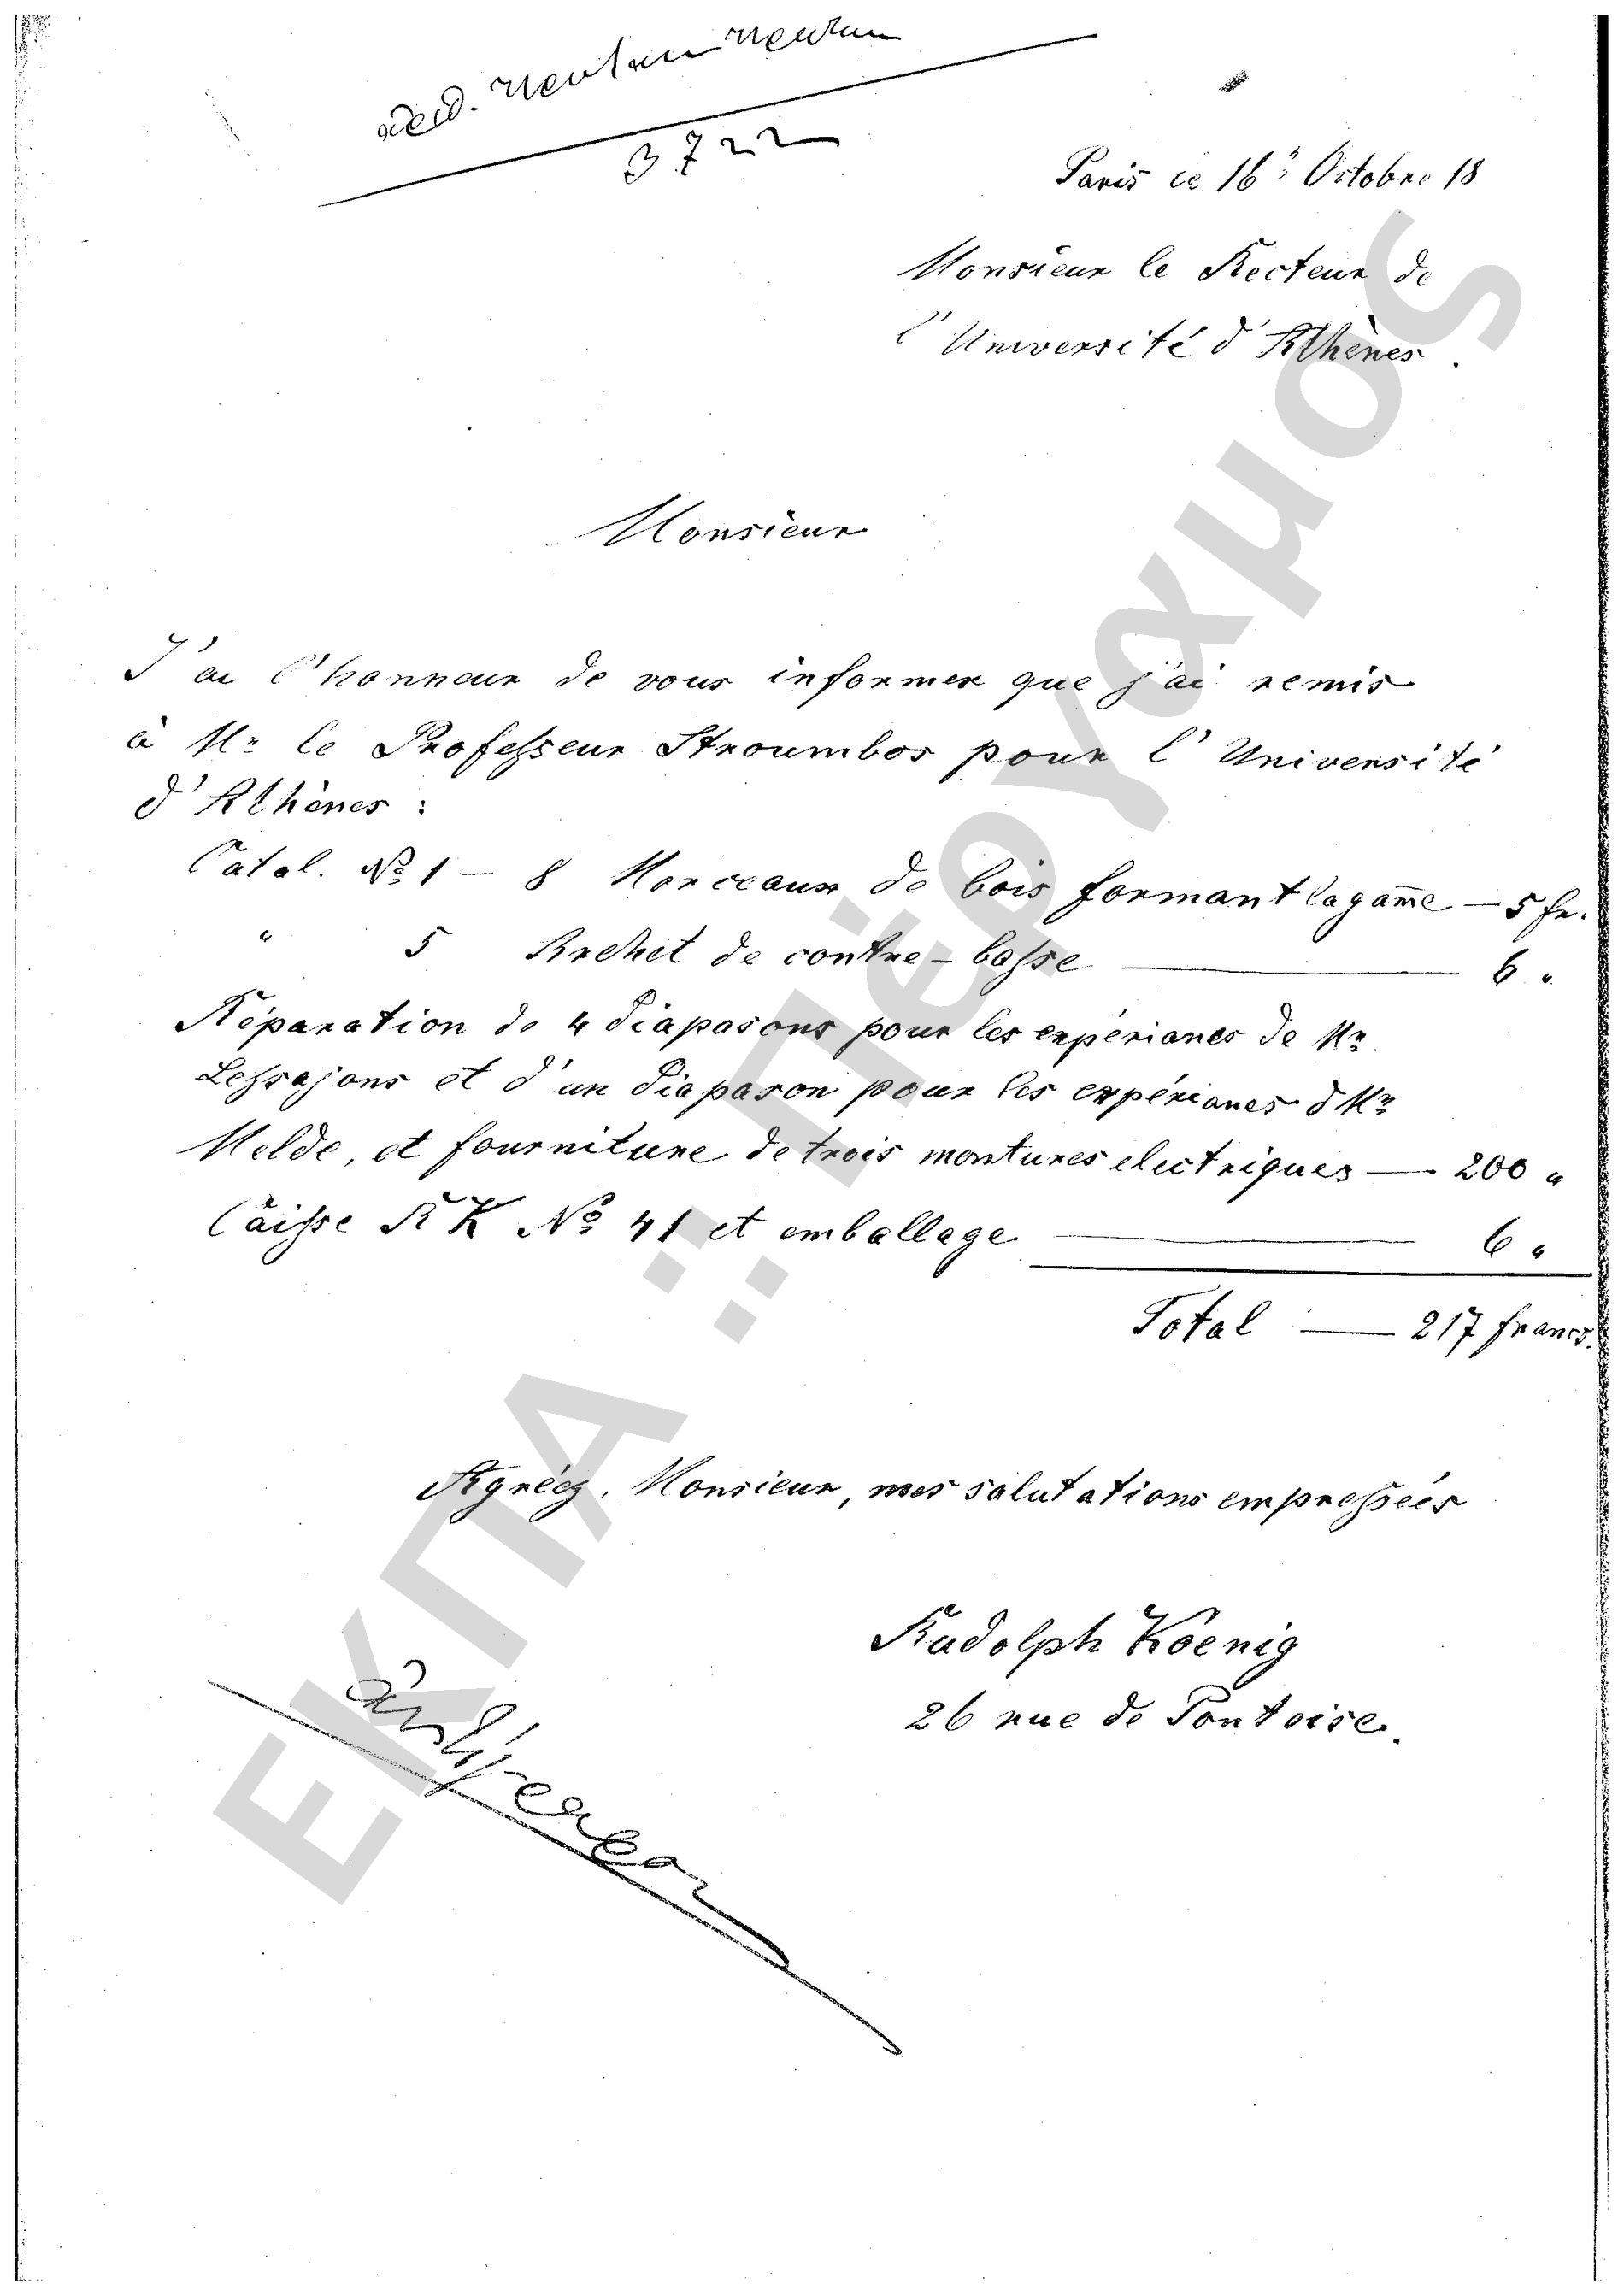 3722
Paris ce 16 Octobre 18
Monsieur le Recteur de
l'Université d'Athènes.
Monsieur
J'ai l'honneur de vous informer que j'ai remis
à Mr le Professeur Stroumbos pour l'Université
d'Athènes :
Catal. No 1 – 8 Morceaux de bois formant la gam̅e – 5 fr.
" 5 Archet de contre-basse — 6 "
Réparation de 4 diapasons pour les expériances de Mr
Lessajons et d'un diapason pour les expériances d Mr
Melde, et fourniture de trois montures electriques — 200 "
Caisse R K No 41 et emballage — 6 "
Total — 217 francs.
Agréez, Monsieur, mes salutations empressées
Rudolph Koenig
26 rue de Pontoise.
ΕΚΠΑ :: Πέργαμος